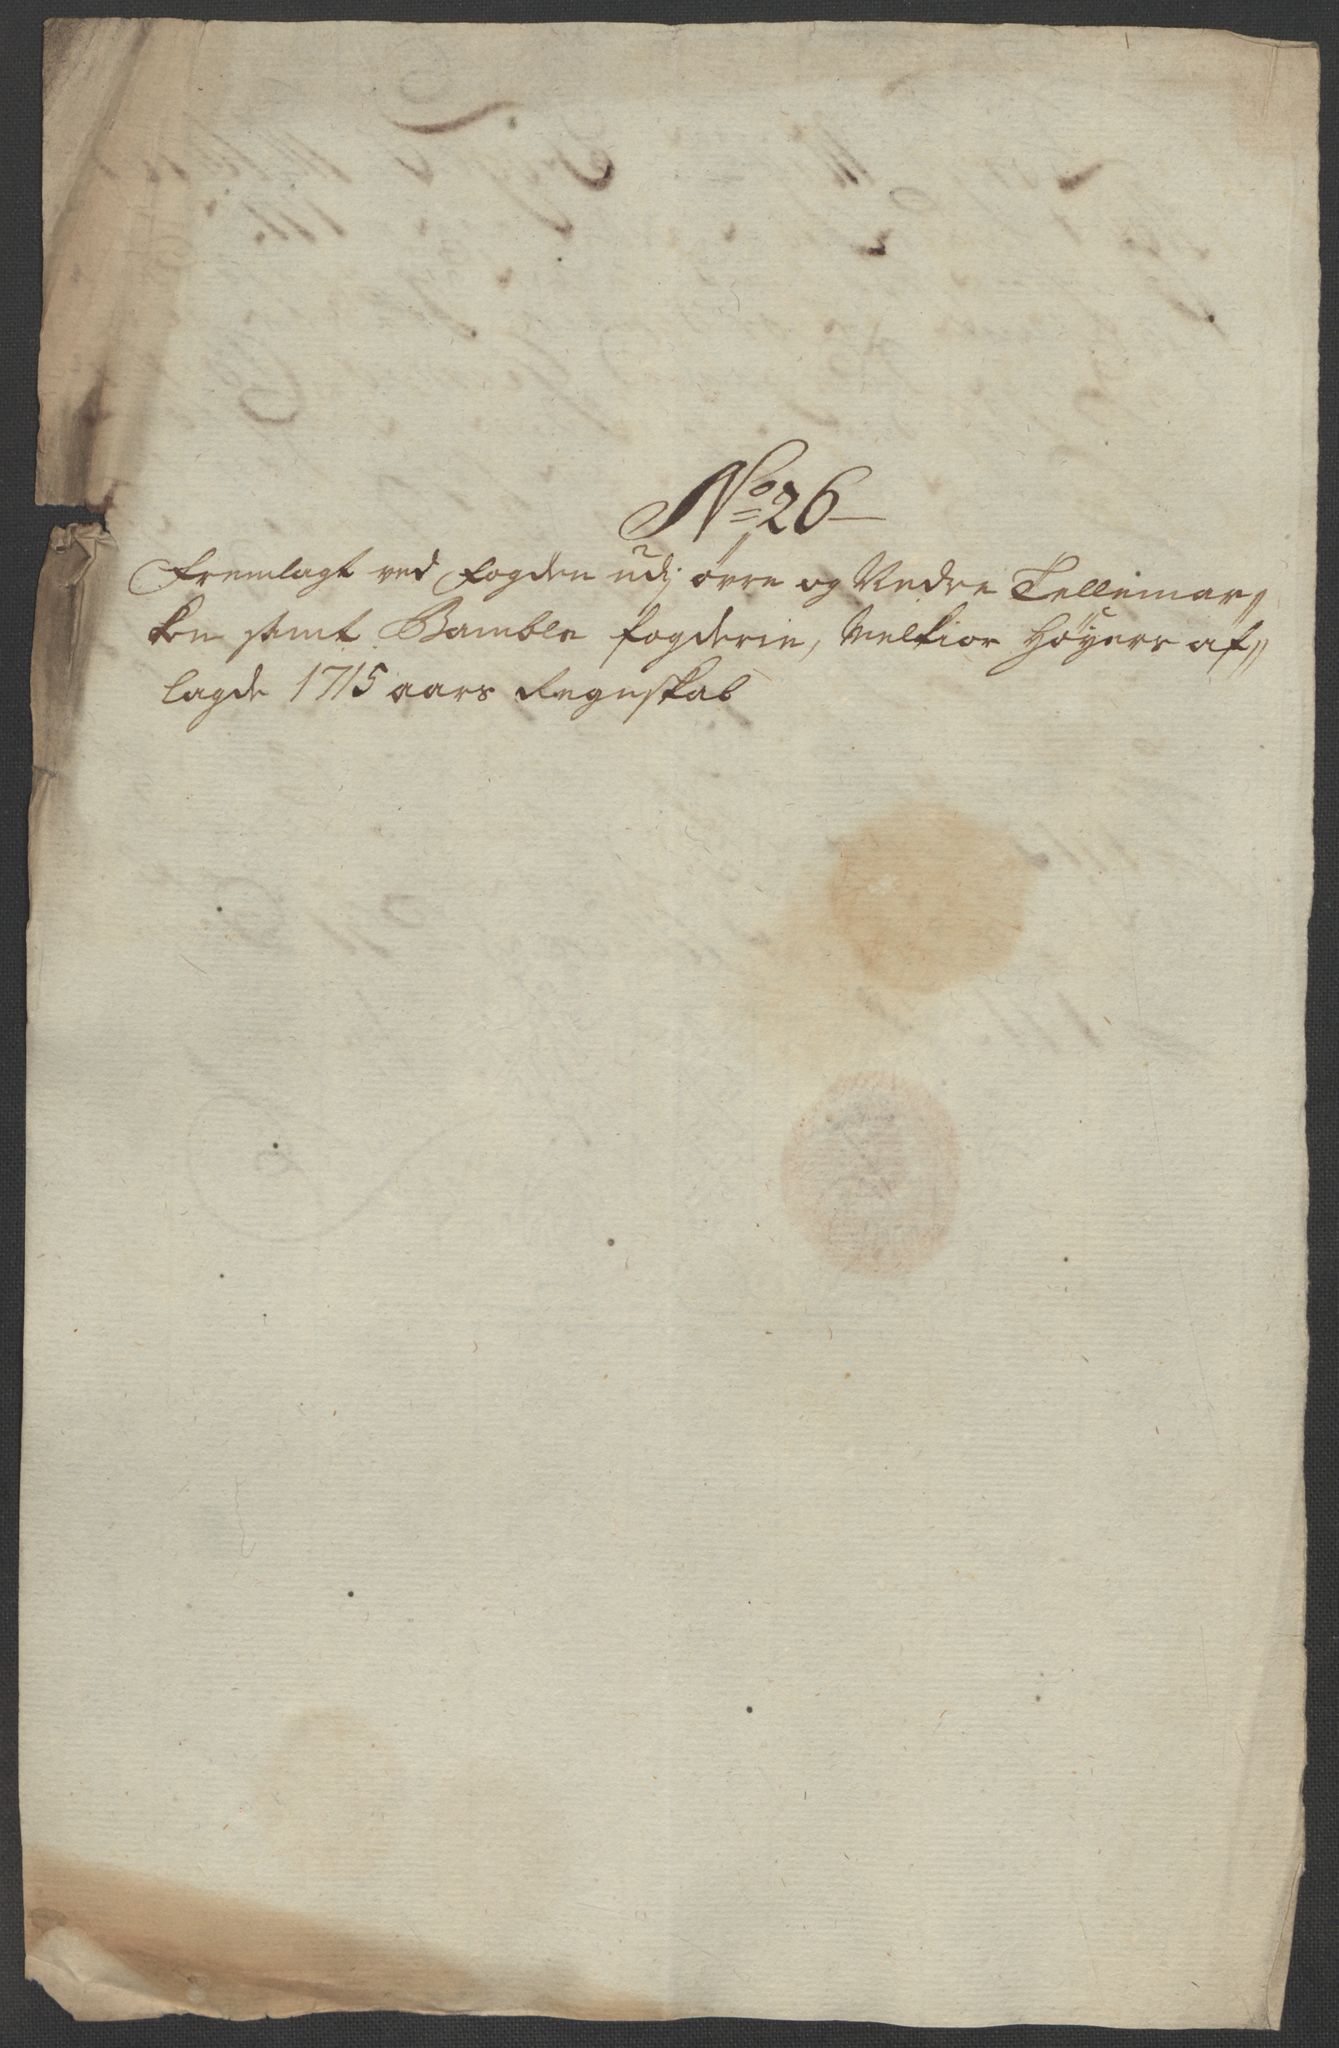 No 26
Fremlagt ved Fogden udj øvre og Nedre Tellemar„
ken samt Bamble fogderie, Melkior Høyers af„
lagde 1715 aars Regnskab